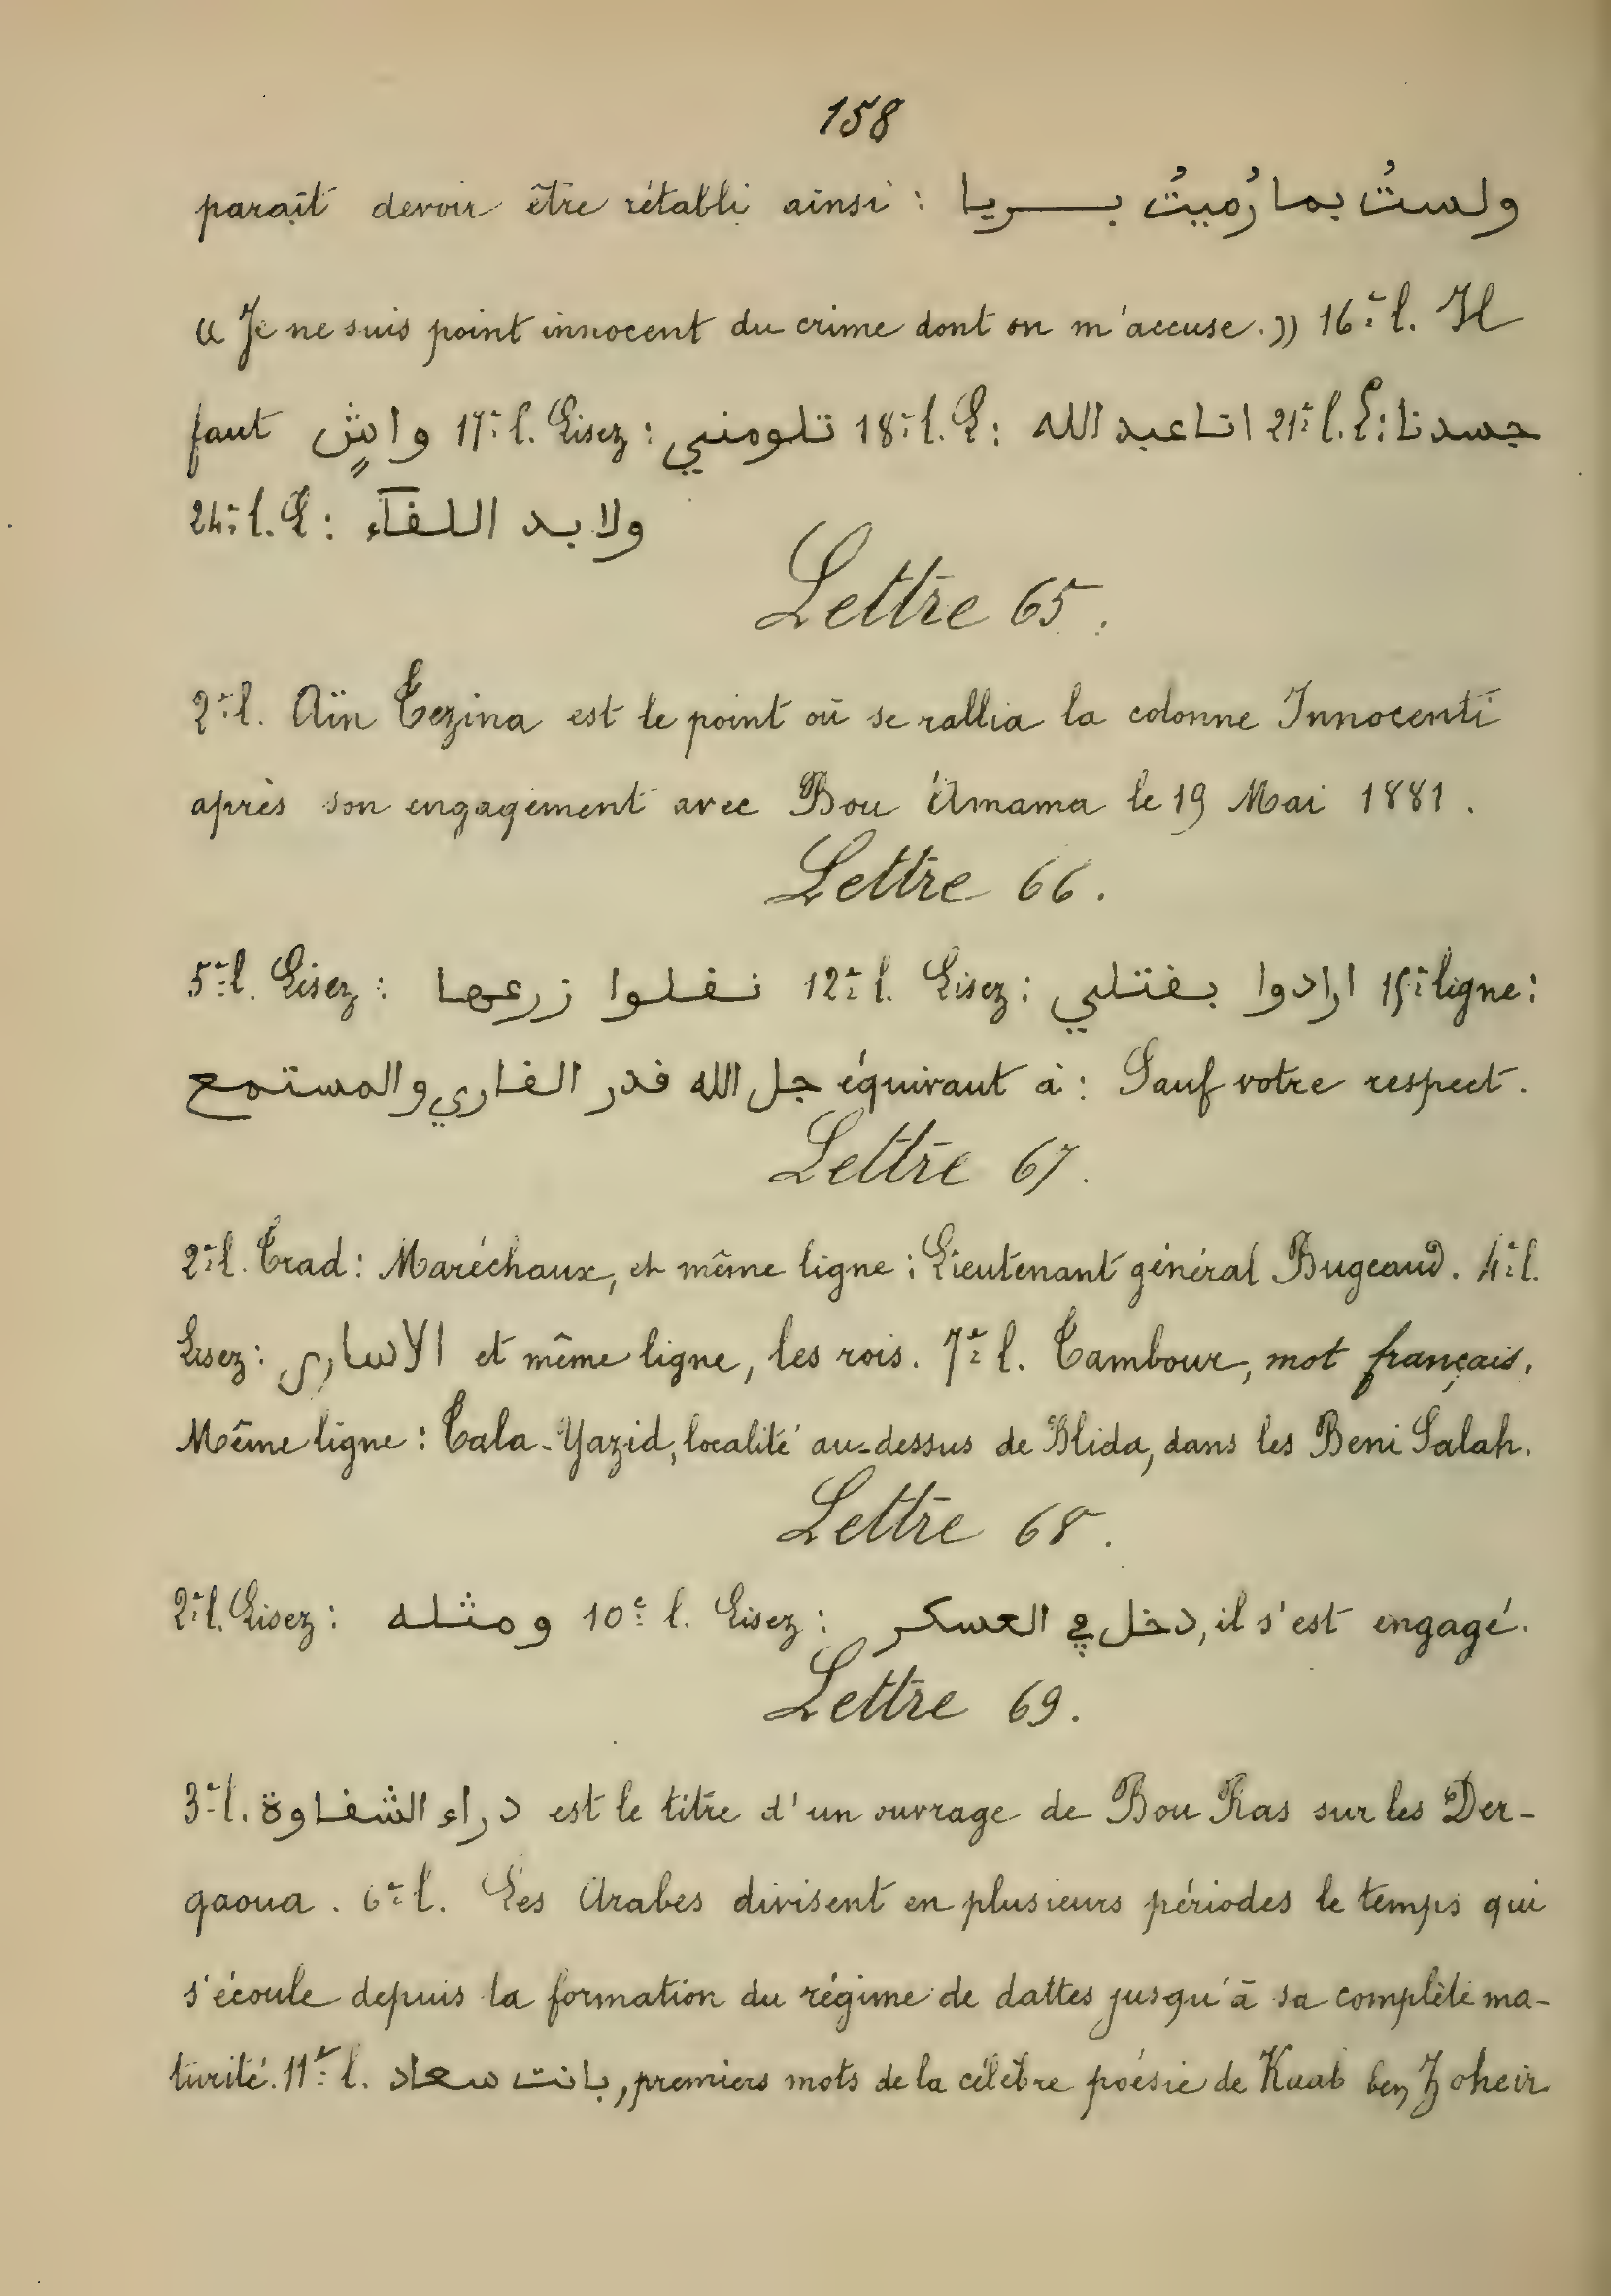 158
paraît devoir être rétabli ainsi : ولستُ بما رُميتُ بـــريا
« Je ne suis point innocent du crime dont on m'accuse. » 16e l. Il
faut واشٍ 17e l. Lisez : تلومني 18e l. L : اتا عبد الله 21e l. L : جسدنا
24e l. L : ولا بد اللفآء
Lettre 65.
2e l. Aïn Tezina est le point où se rallia la colonne Innocenti
après son engagement avec Bou Amama le 19 Mai 1881.
Lettre 66.
5e l. Lisez : نفلوا زرعها 12e l. Lisez : ارادوا بفتلي 15e ligne :
جل الله فدر الفاري والمستمع équivaut à : Sauf votre respect.
Lettre 67.
2e l. Trad : Maréchaux, et même ligne : Lieutenant général Bugeaud. 4e l.
Lisez : الاسارى et même ligne, les rois. 7e l. Tambour, mot français.
Même ligne : Tala-Yazid, localité au-dessus de Blida, dans les Beni Salah.
Lettre 68.
2e l. Lisez : ومثله 10e l. Lisez : دخل في العسكر, il s'est engagé.
Lettre 69.
3e l. دراء الشفاوة est le titre d'un ouvrage de Bou Ras sur les Der-
qaoua. 6e l. Les Arabes divisent en plusieurs périodes le temps qui
s'écoule depuis la formation du régime de dattes jusqu'à sa complète ma-
turité. 11e l. بانت سعاد, premiers mots de la célèbre poésie de Kaab ben Zoheir